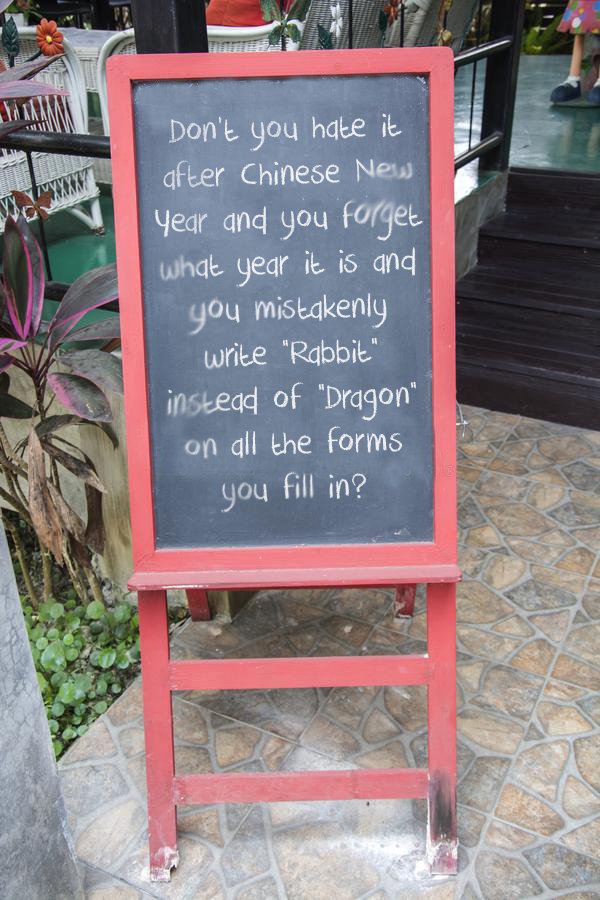 Don't you hate it
after Chinese New
Year and you forget
what year it is and
you mistakenly
write "Rabbit"
instead of "Dragon"
on all the forms
you fill in?